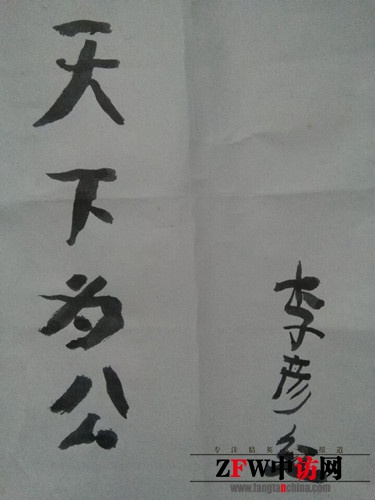 天下为公
李彦
ZFW中访网
www.fangtanchina.com